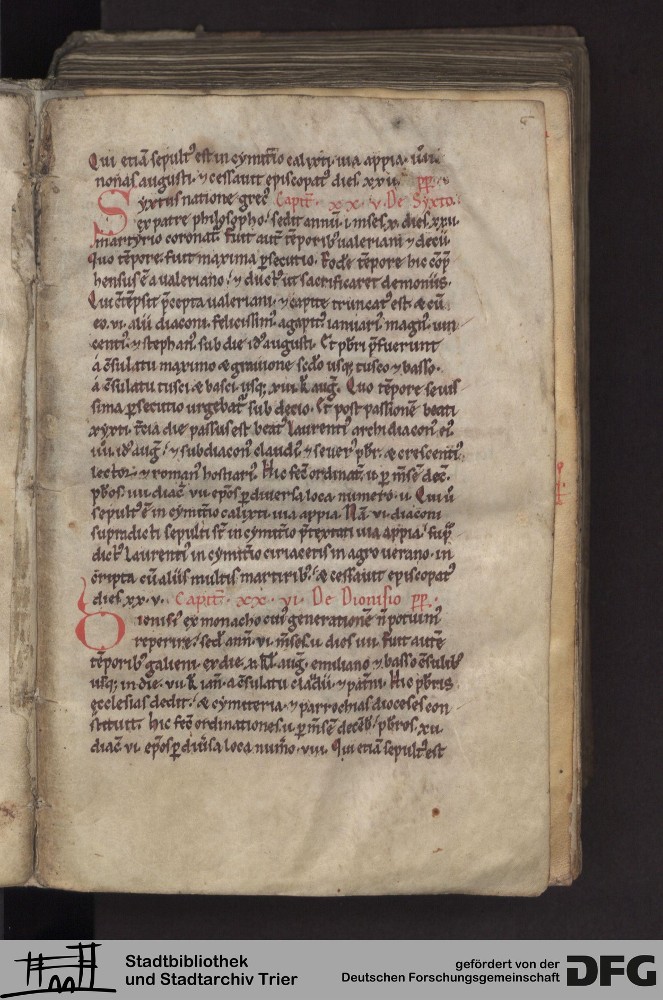 Qui etiā sepult᷒ est in cymit̄io calixti. uia appia. 
nonas augusti. ⁊ cessauit episcopat᷒ dies xxxu. pp.
Syxtus natione grec᷒ Capit̄. xx. v. De Syxto.
ex patre philosopho. sedit annū. i. m̄ses. x. dies xxu.
martyrio coronat᷒. Fuit aut̄ tēporib᷒ ualeriani ⁊ decii.
Quo tēpore. fuit maxima ꝑsecutio. Eodē tēpore hic cōp̄
hensus ē a ualeriano. ⁊ duct᷒ ut sacrificaret demoniis.
Qui cōtēpsit p̄cepta ualeriani. ⁊ capite truncat᷒ est. & cū
eo. vi. alii diaconi. felicissim᷒. agapit᷒. ianuari᷒. magn᷒. uin
centi᷒. ⁊ stephan᷒. sub die id᷒ augusti. Et pb̄ri p̄fuerunt
a c̄sulatu maximo & grauione sc̄do usq; tusco ⁊ basso.
a c̄sulatu tusci & bassi usq; xui. k̄ aug̅. Quo tēpore seuis
sima ꝑsecutio urgebat᷒ sub decio. Et post passionē beati
xyxti. t̄cia die passus est beat᷒ laurenti᷒ archidiacon᷒ ei᷒
iiii. id᷒ aug̅. ⁊ subdiacon᷒ claudi᷒ ⁊ seuer᷒ pb̄r. & crescenti᷒
lector. ⁊ roman᷒ hostiari᷒. Hic fec̄ ordinat̄. ii. ꝑ m̄sē dec̄.
pb̄ros. iiii. diac̄ vii. ep̄os ꝑ diuersa loca numero. ii. Qui ū
sepult᷒ ē in cymit̄io calixti. uia appia. Nā. vi. diaconi
supradicti sepulti st̄ in cymit̄io p̄textati uia appia.
dict᷒ laurenti᷒ in cymit̄io ciriacetis in agro uerano. in
c̄ripta cū aliis multis martirib᷒. & cessauit episcopat᷒
dies. xx. v. Capit̄. xx. vi. De Dionisio pp.
Dionisi᷒ ex monacho cui᷒ generationē n̄ potuim᷒
reperire. sed̄. ann̄. vi. m̄ses. ii. dies iiii. Fuit autē
tēporib᷒ galieni. ex die. aug̅. emiliano ⁊ basso c̄sulib᷒
usq; in diē. vii. k̄ ian̄. a c̄sulatu claudii ⁊ pat̄ni. Hic pb̄ris
ecclesias dedit. & cymiteria. ⁊ parrochias dioceses con
stituit. hic fec̄ ordinationes. ii. ꝑ m̄sē decēb̄. pb̄ros. xii.
diac̄ vi. ep̄os ꝑ diūsa loca num̄o. viii. Qui etiā sepult᷒ est
Stadtbibliothek
und Stadtarchiv Trier
gefördert von der
Deutschen Forschungsgemeinschaft
DFG